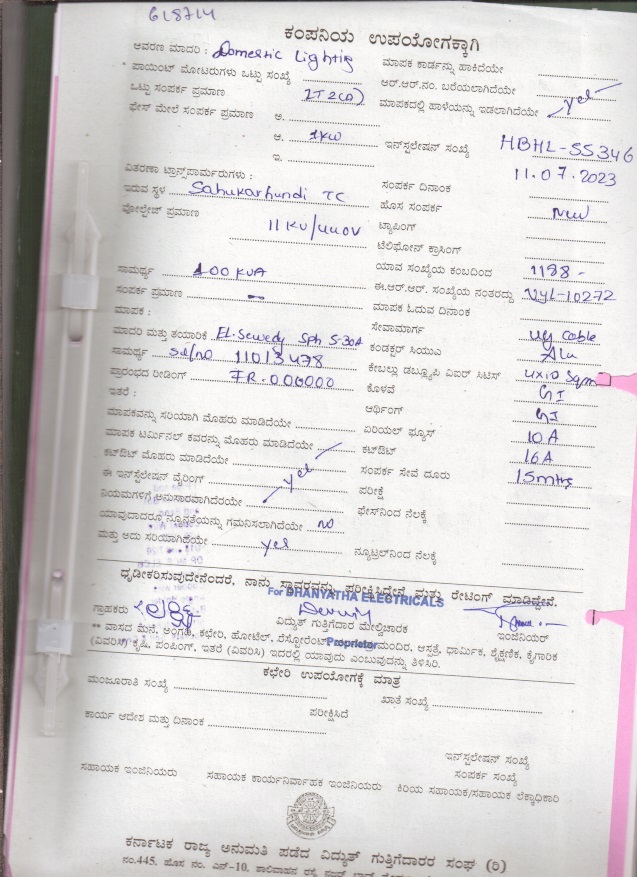 618714
ಕಂಪನಿಯ ಉಪಯೋಗಕ್ಕಾಗಿ
ಆವರಣ ಮಾದರಿ : Domestic Lighting ಮಾಪಕ ಕಾರ್ಡನ್ನು ಹಾಕಿದೆಯೇ
ಪಾಯಿಂಟ್ ಮೋಟರುಗಳು ಒಟ್ಟು ಸಂಖ್ಯೆ ಆರ್.ಆರ್.ನಂ. ಬರೆಯಲಾಗಿದೆಯೇ
ಒಟ್ಟು ಸಂಪರ್ಕ ಪ್ರಮಾಣ ಮಾಪಕದಲ್ಲಿ ಹಾಳೆಯನ್ನು ಇಡಲಾಗಿದೆಯೇ yes
ಫೇಸ್ ಮೇಲೆ ಸಂಪರ್ಕ ಪ್ರಮಾಣ ಅ.
ಆ. 1KW ಇನ್‌ಸ್ಟಲೇಷನ್ ಸಂಖ್ಯೆ HBHL-SS346
ಇ. 11.07.2023
ವಿತರಣಾ ಟ್ರಾನ್ಸ್‌ಫಾರ್ಮರುಗಳು : ಸಂಪರ್ಕ ದಿನಾಂಕ
ಇರುವ ಸ್ಥಳ Sahukarhundi TC ಹೊಸ ಸಂಪರ್ಕ New
ವೋಲ್ಟೇಜ್ ಪ್ರಮಾಣ 11KV/440V ಟ್ಯಾಪಿಂಗ್
ಟೆಲಿಫೋನ್ ಕ್ರಾಸಿಂಗ್
ಸಾಮರ್ಥ್ಯ 100 KVA ಯಾವ ಸಂಖ್ಯೆಯ ಕಂಬದಿಂದ 1188 -
ಸಂಪರ್ಕ ಪ್ರಮಾಣ - ಈ.ಆರ್.ಆರ್. ಸಂಖ್ಯೆಯ ನಂತರದ್ದು VYL-10272
ಮಾಪಕ : ಮಾಪಕ ಓದುವ ದಿನಾಂಕ
ಮಾದರಿ ಮತ್ತು ತಯಾರಿಕೆ EL-Sewedy Sph 5-30A ಸೇವಾಮಾರ್ಗ ug cable
ಸಾಮರ್ಥ್ಯ sl/no 11013478 ಕಂಡಕ್ಟರ್ ಸಿಯುಎ Alu
ಪ್ರಾರಂಭದ ರೀಡಿಂಗ್ FR-000000 ಕೇಬಲ್ಲು ಡಬ್ಲ್ಯೂಪಿ ವಿಐರ್ ಸಿಟಿಸ್ 4x10 Sqmm
ಇತರೆ : ಕೊಳವೆ GI
ಮಾಪಕವನ್ನು ಸರಿಯಾಗಿ ಮೊಹರು ಮಾಡಿದೆಯೇ ಆರ್ಥಿಂಗ್ GI
ಮಾಪಕ ಟರ್ಮಿನಲ್ ಕವರನ್ನು ಮೊಹರು ಮಾಡಿದೆಯೇ ಏರಿಯಲ್ ಫ್ಯೂಸ್ 10A
ಕಟ್‌ಔಟ್ ಮೊಹರು ಮಾಡಿದೆಯೇ ಕಟ್‌ಔಟ್ 16A
ಈ ಇನ್‌ಸ್ಟಲೇಷನ್ ವೈರಿಂಗ್ yes ಸಂಪರ್ಕ ಸೇವೆ ದೂರು 15mtrs
ನಿಯಮಗಳಿಗೆ ಅನುಸಾರವಾಗಿದೆರಯೇ ಪರೀಕ್ಷೆ
ಯಾವುದಾದರೂ ನ್ಯೂನತೆಯನ್ನು ಗಮನಿಸಲಾಗಿದೆಯೇ no ಫೇಸ್‌ನಿಂದ ನೆಲಕ್ಕೆ
ಮತ್ತು ಅದು ಸರಿಯಾಗಿದೆಯೇ yes ನ್ಯೂಟ್ರಲ್‌ನಿಂದ ನೆಲಕ್ಕೆ
ಧೃಡೀಕರಿಸುವುದೇನೆಂದರೆ, ನಾನು ಸ್ಥಾವರವನ್ನು ಪರೀಕ್ಷಿಸಿದ್ದೇನೆ ಮತ್ತು ರೇಟಿಂಗ್ ಮಾಡಿದ್ದೇವೆ.
For DHANYATHA ELECTRICALS
ಗ್ರಾಹಕರು ವಿದ್ಯುತ್ ಗುತ್ತಿಗೆದಾರ ಮೇಲ್ವಿಚಾರಕ ಇಂಜಿನಿಯರ್
Proprietor
** ವಾಸದ ಮನೆ, ಅಂಗಡಿ, ಕಛೇರಿ, ಹೋಟೆಲ್, ರೆಸ್ಟೋರೆಂಟ್ ಮಂದಿರ, ಆಸ್ಪತ್ರೆ, ಧಾರ್ಮಿಕ, ಶೈಕ್ಷಣಿಕ, ಕೈಗಾರಿಕ
(ವಿವರಿಸಿ) ಕೃಷಿ, ಪಂಪಿಂಗ್, ಇತರೆ (ವಿವರಿಸಿ) ಇದರಲ್ಲಿ ಯಾವುದು ಎಂಬುವುದನ್ನು ತಿಳಿಸಿರಿ.
ಕಛೇರಿ ಉಪಯೋಗಕ್ಕೆ ಮಾತ್ರ
ಮಂಜೂರಾತಿ ಸಂಖ್ಯೆ ಖಾತೆ ಸಂಖ್ಯೆ
ಕಾರ್ಯ ಆದೇಶ ಮತ್ತು ದಿನಾಂಕ ಪರೀಕ್ಷಿಸಿದೆ
ಇನ್‌ಸ್ಟಲೇಷನ್ ಸಂಖ್ಯೆ
ಸಂಪರ್ಕ ಸಂಖ್ಯೆ
ಸಹಾಯಕ ಇಂಜಿನಿಯರು ಸಹಾಯಕ ಕಾರ್ಯನಿರ್ವಾಹಕ ಇಂಜಿನಿಯರು ಕಿರಿಯ ಸಹಾಯಕ/ಸಹಾಯಕ ಲೆಕ್ಕಾಧಿಕಾರಿ
ಕರ್ನಾಟಕ ರಾಜ್ಯ ಅನುಮತಿ ಪಡೆದ ವಿದ್ಯುತ್ ಗುತ್ತಿಗೆದಾರರ ಸಂಘ (ರಿ)
ನಂ.445, ಹೊಸ ನಂ. ಎನ್-10, ಶಾಲಿವಾಹನ ರಸ್ತೆ,